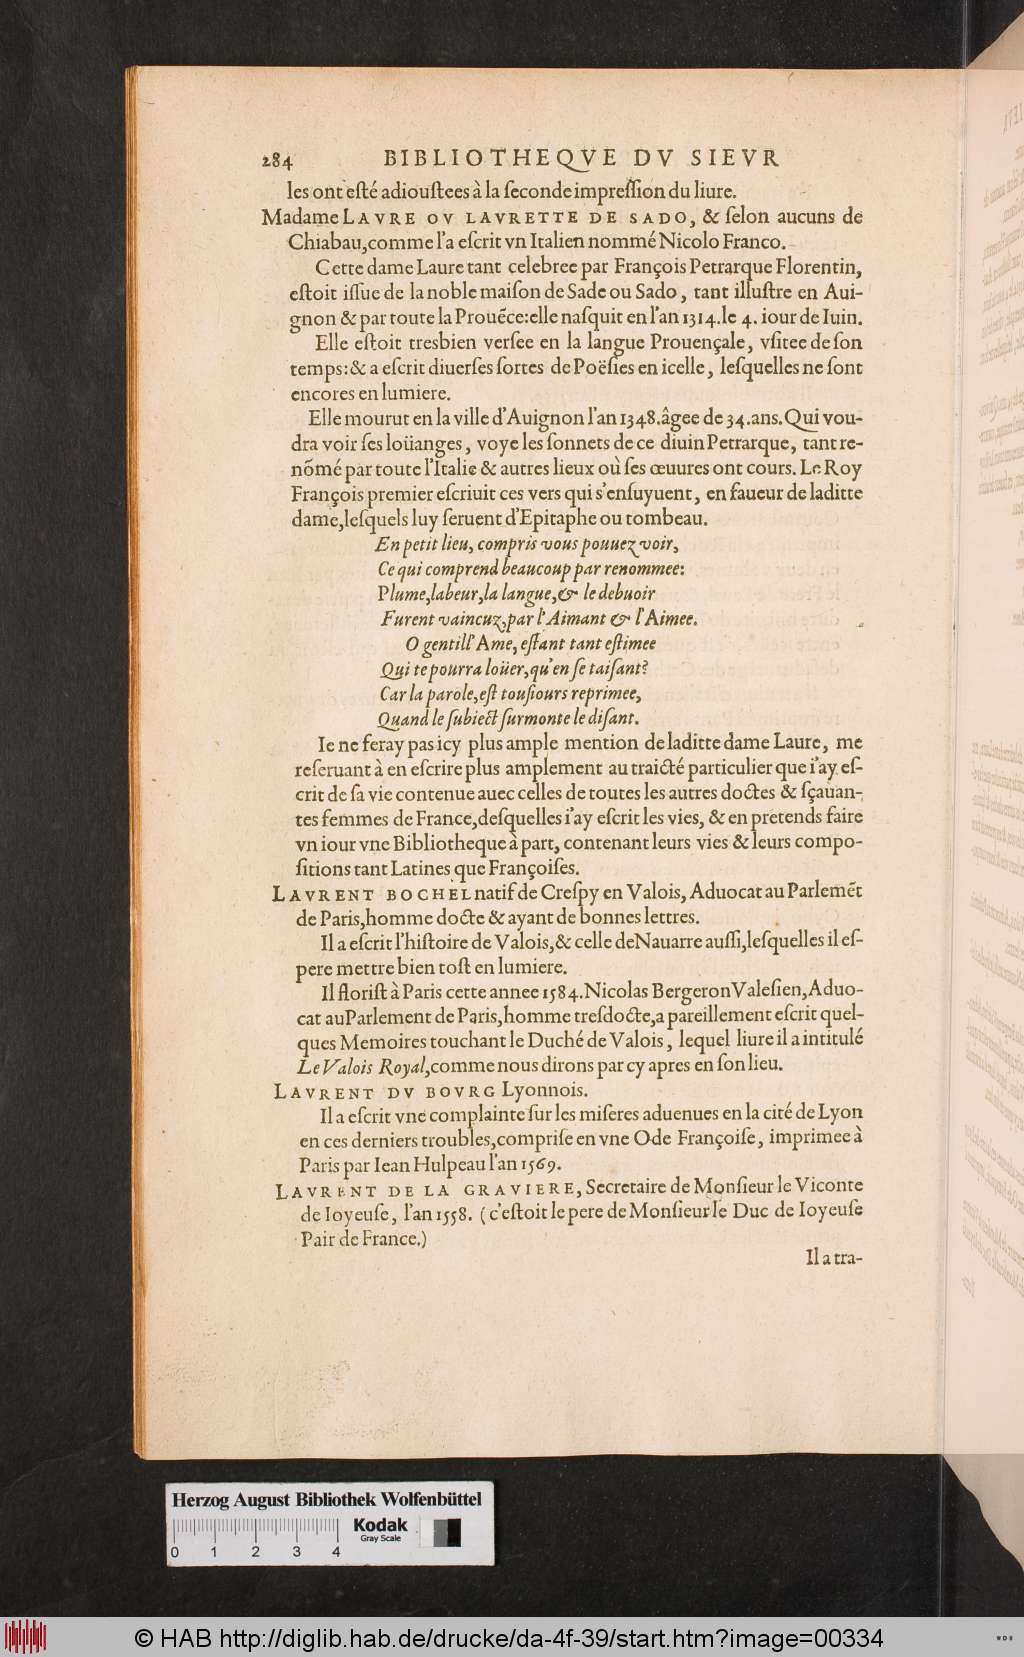 284 BIBLIOTHEQVE DV SIEVR
les ont eſté adiouſtees à la ſeconde impreſſion du liure.
Madame LAVRE OV LAVRETTE DE SADO, & ſelon aucuns de
Chiabau,comme l'a eſcrit vn Italien nommé Nicolo Franco.
Cette dame Laure tant celebree par François Petrarque Florentin,
eſtoit iſſue de la noble maiſon de Sade ou Sado, tant illuſtre en Aui-
gnon & par toute la Prouẽce:elle naſquit en l'an 1314.le 4. iour de Iuin.
Elle eſtoit tresbien verſee en la langue Prouençale, vſitee de ſon
temps:& a eſcrit diuerſes ſortes de Poëſies en icelle, leſquelles ne ſont
encores en lumiere.
Elle mourut en la ville d'Auignon l'an 1348.âgee de 34.ans.Qui vou-
dra voir ſes loüanges, voye les ſonnets de ce diuin Petrarque, tant re-
nõmé par toute l'Italie & autres lieux où ſes œuures ont cours. Le Roy
François premier eſcriuit ces vers qui s'enſuyuent, en faueur de laditte
dame,leſquels luy ſeruent d'Epitaphe ou tombeau.
En petit lieu, compris vous pouuez voir,
Ce qui comprend beaucoup par renommee:
Plume,labeur,la langue,& le debuoir
Furent vaincuz,par l'Aimant & l'Aimee.
O gentill' Ame, eſtant tant eſtimee
Qui te pourra loüer,qu'en ſe taiſant?
Car la parole,eſt touſiours reprimee,
Quand le ſubiect ſurmonte le diſant.
Ie ne feray pas icy plus ample mention de laditte dame Laure, me
reſeruant à en eſcrire plus amplement au traicté particulier que i'ay eſ-
crit de ſa vie contenue auec celles de toutes les autres doctes & ſçauan-
tes femmes de France,deſquelles i'ay eſcrit les vies, & en pretends faire
vn iour vne Bibliotheque à part, contenant leurs vies & leurs compo-
ſitions tant Latines que Françoiſes.
LAVRENT BOCHEL natif de Creſpy en Valois, Aduocat au Parlemẽt
de Paris,homme docte & ayant de bonnes lettres.
Il a eſcrit l'hiſtoire de Valois,& celle de Nauarre auſſi,leſquelles il eſ-
pere mettre bien toſt en lumiere.
Il floriſt à Paris cette annee 1584.Nicolas Bergeron Valeſien,Aduo-
cat au Parlement de Paris,homme treſdocte,a pareillement eſcrit quel-
ques Memoires touchant le Duché de Valois, lequel liure il a intitulé
Le Valois Royal,comme nous dirons par cy apres en ſon lieu.
LAVRENT DV BOVRG Lyonnois.
Il a eſcrit vne complainte ſur les miſeres aduenues en la cité de Lyon
en ces derniers troubles,compriſe en vne Ode Françoiſe, imprimee à
Paris par Iean Hulpeau l'an 1569.
LAVRENT DE LA GRAVIERE, Secretaire de Monſieur le Viconte
de Ioyeuſe, l'an 1558. (c'eſtoit le pere de Monſieur le Duc de Ioyeuſe
Pair de France.)
Il a tra-
Herzog August Bibliothek Wolfenbüttel
Kodak
Gray Scale
0 1 2 3 4
© HAB http://diglib.hab.de/drucke/da-4f-39/start.htm?image=00334